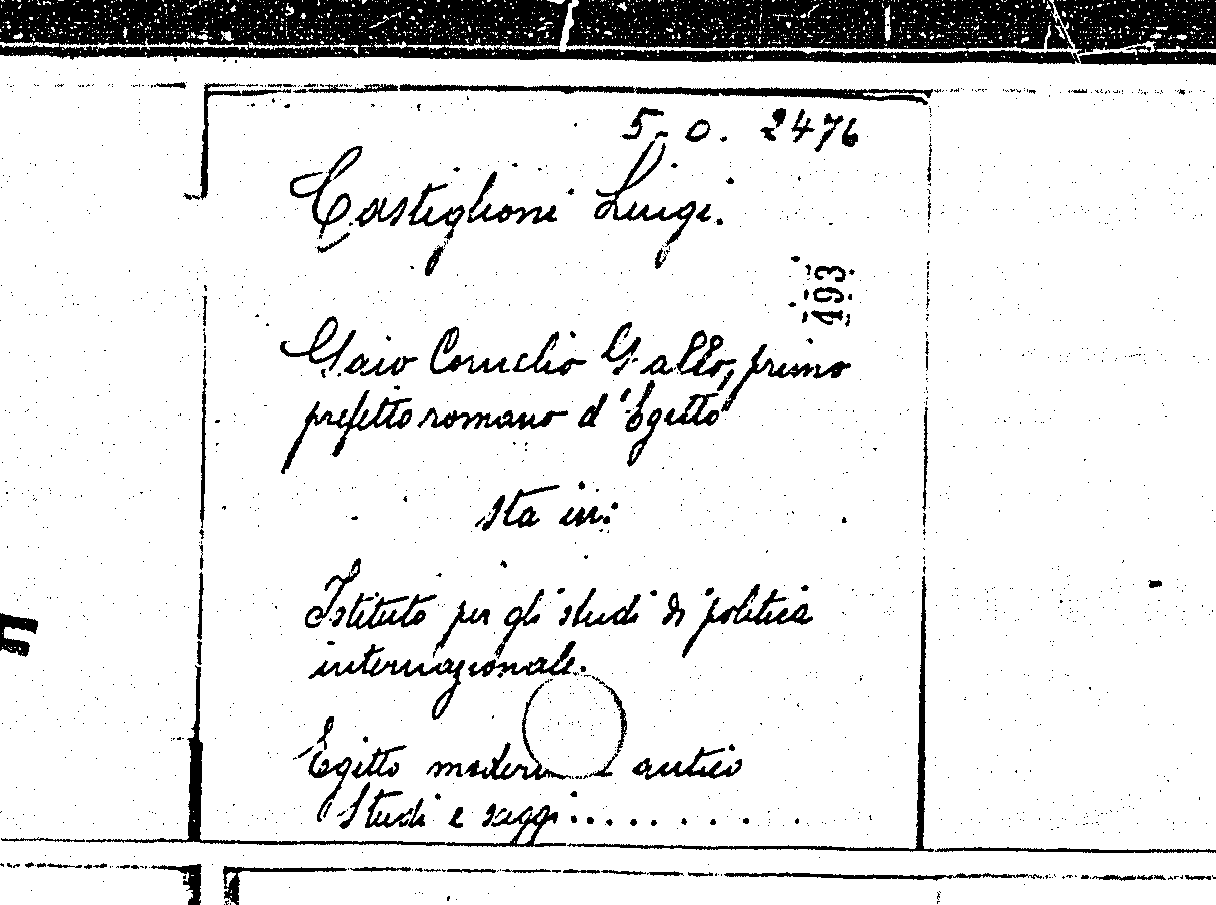 5.0. 2476
Castiglioni Luigi.
493
Gaio Cornelio Gallo, primo
prefetto romano d'Egitto
sta in:
Istituto per gli studi di politica
internazionale.
Egitto moderno e antico
Studi e saggi..........